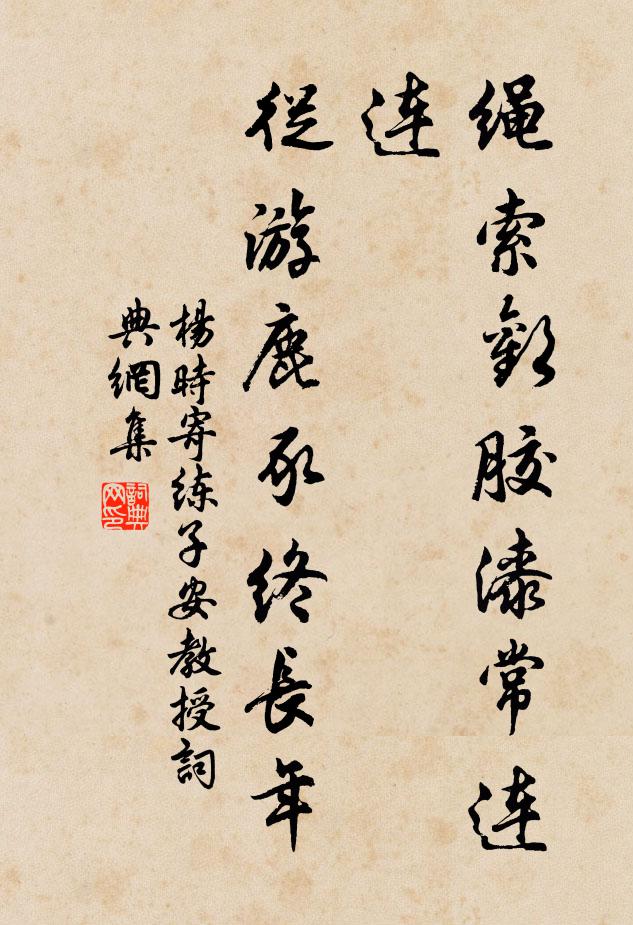 绳索歡胶漆常連
連
從游鹿豕終長年
楊時寄練子安教授詞
典網集
詞典
网印